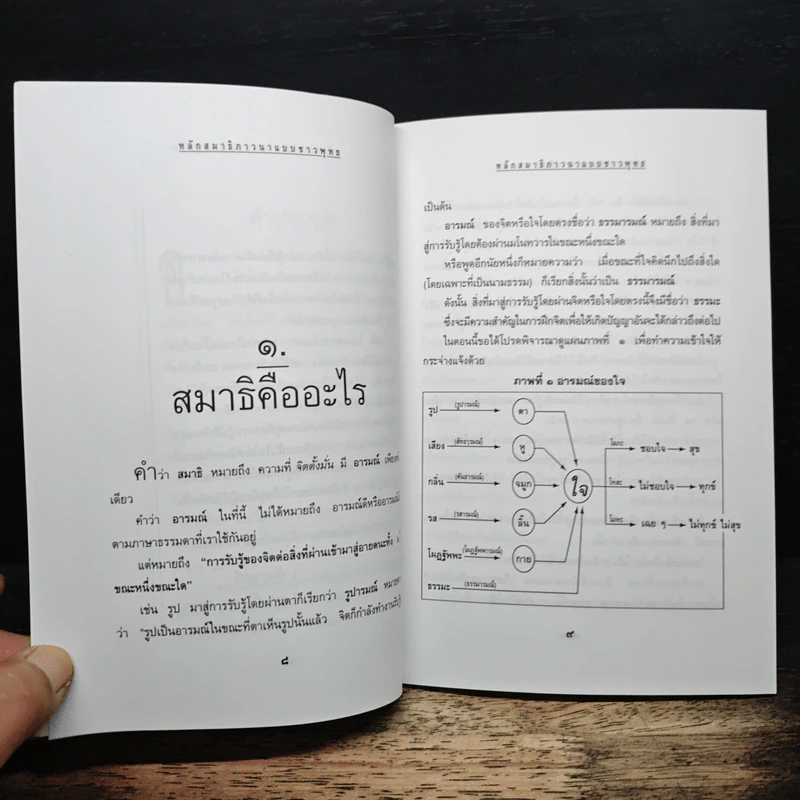 หลักสมาธิภาวนาแบบชาวพุทธ
๑.
สมาธิคืออะไร
คำว่า สมาธิ หมายถึง ความที่ จิตตั้งมั่น มี อารมณ์ เพียง
เดียว
คำว่า อารมณ์ ในที่นี้ ไม่ได้หมายถึง อารมณ์ดีหรืออารมณ์
ตามภาษาธรรมดาที่เราใช้กันอยู่
แต่หมายถึง "การรับรู้ของจิตต่อสิ่งที่ผ่านเข้ามาสู่อายตนะทั้ง
ขณะหนึ่งขณะใด"
เช่น รูป มาสู่การรับรู้โดยผ่านตาก็เรียกว่า รูปารมณ์
ว่า "รูปเป็นอารมณ์ในขณะที่ตาเห็นรูปนั้นแล้ว จิตก็กำลังทำงาน
๘
หลักสมาธิภาวนาแบบชาวพุทธ
เป็นต้น
อารมณ์ ของจิตหรือใจโดยตรงชื่อว่า ธรรมารมณ์ หมายถึง สิ่งที่มา
สู่การรับรู้โดยต้องผ่านมโนทวารในขณะหนึ่งขณะใด
หรือพูดอีกนัยหนึ่งก็หมายความว่า เมื่อขณะที่ใจคิดนึกไปถึงสิ่งใด
(โดยเฉพาะที่เป็นนามธรรม) ก็เรียกสิ่งนั้นว่าเป็น ธรรมารมณ์
ดังนั้น สิ่งที่มาสู่การรับรู้โดยผ่านจิตหรือใจโดยตรงนี้จึงมีชื่อว่า ธรรมะ
ซึ่งจะมีความสำคัญในการฝึกจิตเพื่อให้เกิดปัญญาอันจะได้กล่าวถึงต่อไป
ในตอนนี้ขอได้โปรดพิจารณาดูแผนภาพที่ ๑ เพื่อทำความเข้าใจให้
กระจ่างแจ้งด้วย
ภาพที่ ๑ อารมณ์ของใจ
รูป (รูปารมณ์) ตา
เสียง (สัททารมณ์) หู
กลิ่น (คันธารมณ์) จมูก
รส (รสารมณ์) ลิ้น
โผฏฐัพพะ (โผฏฐัพพารมณ์) กาย
ธรรมะ (ธรรมารมณ์)
ใจ
โลภะ ชอบใจ สุข
โทสะ ไม่ชอบใจ ทุกข์
โมหะ เฉย ๆ ไม่ทุกข์ ไม่สุข
๙